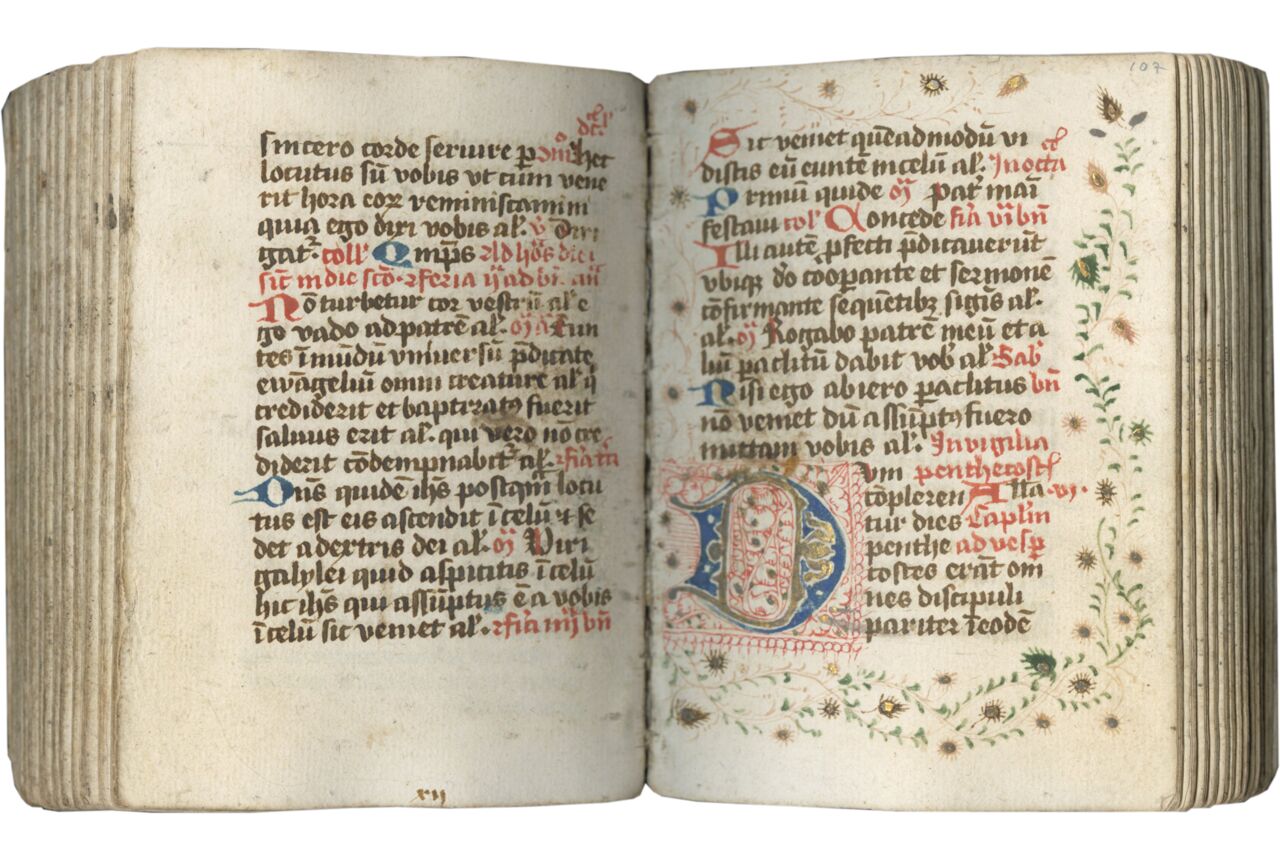 sincero corde seruire p dm̄ Hec
locutus sū vobis vt cum vene
rit hora eoꝝ reminiscamini
quia ego dixi vobis al'. v̓ Ascē
gat᷑. coll' Omp̄s Ad hōs diei
sic̄ in die scō. feria ij ad bn̄ an̄
Nō turbetur cor vestrū al' e
go vado ad patrē al'. Eun
tes ī mūdū vniuersū p̄dicate
ewāgeliū omni creature al' q̄
crediderit et baptizatꝯ fuerit
saluus erit al'. qui vero nō cre
diderit cōdempnabit᷑ al'. fīa
Dn̄s quidē ih̄s postq̄m locu
tus est eis ascendit ī celū et se
det a dextris dei al'. Viri
galylei quid aspicitis ī celū
hic ih̄s qui assūptus ē a vobis
ī celū sic veniet al'. fīa iiij bn̄
xij
107
Sic veniet quēadmodū vi
distis eū euntē in celū al'. In octa
Primū quidē patr̄ maī
festaui col' Concede fīa vi bn̄
Illi autē pfecti p̄dicauerūt
vbiqꝫ dō coopante et sermonē
cōfirmante sequētibꝫ sigīs al'.
al'. Rogabo patrē meū et a
liū paclitū dabit vob al' Sab'
Nisi ego abiero paclitus bn̄
nō veniet dū assūptꝯ fuero
mittam vobis al'. In vigilia
Dum penthecost'
cōpleren Alla. vj.
tur dies Caplm
penthe ad vesp
costes erāt om
nes discipuli
pariter ī eodē